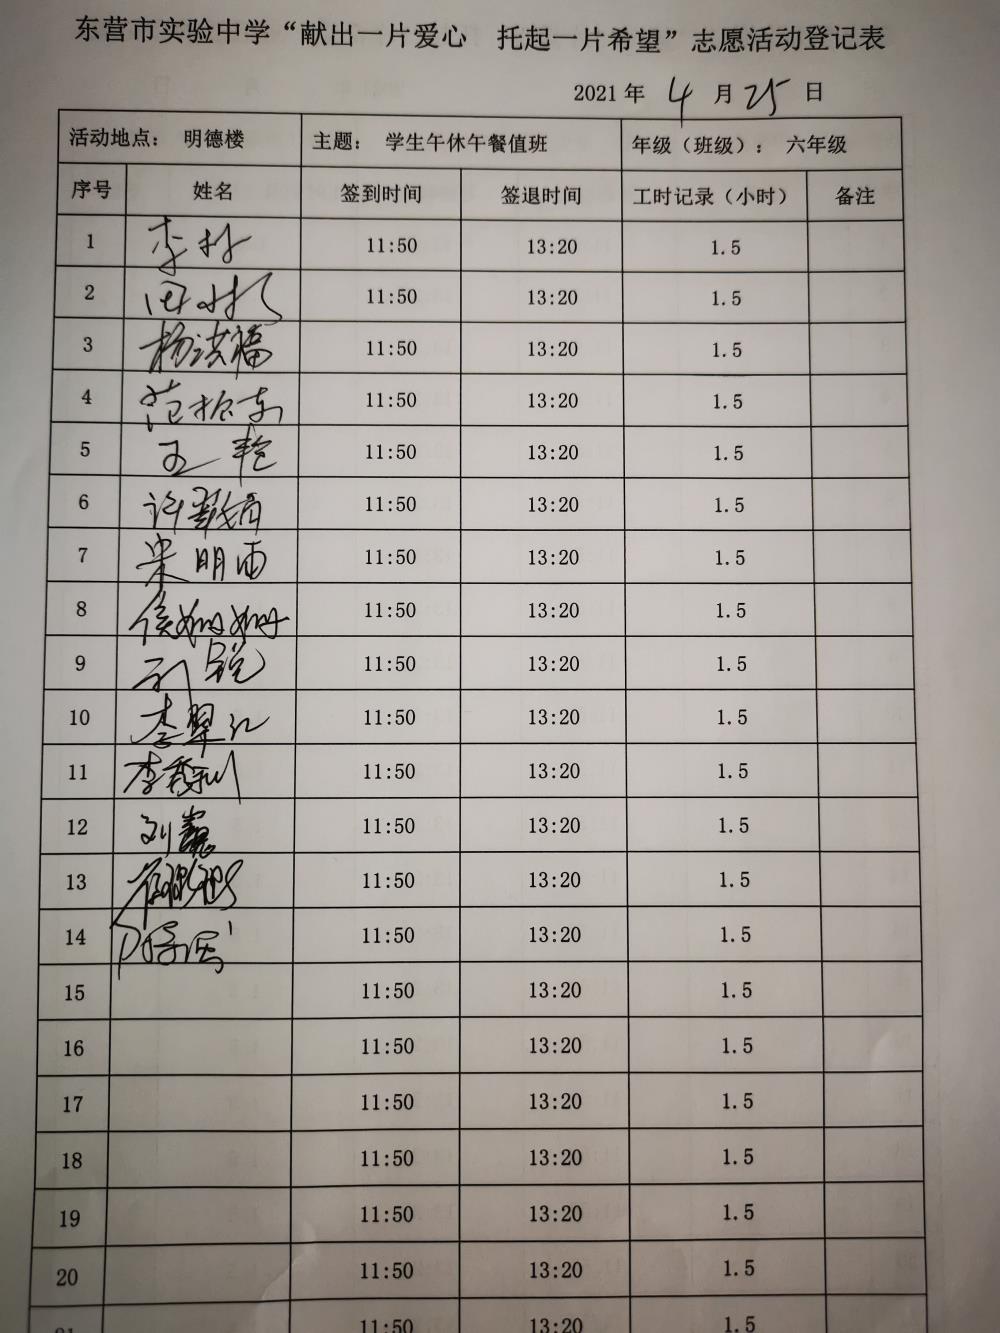 东营市实验中学“献出一片爱心 托起一片希望”志愿活动登记表
2021年 4 月 25 日
活动地点： 明德楼 主题： 学生午休午餐值班 年级（班级）： 六年级
序号 姓名 签到时间 签退时间 工时记录（小时） 备注
1 李林 11:50 13:20 1.5
2 11:50 13:20 1.5
3 杨洪福 11:50 13:20 1.5
4 范振东 11:50 13:20 1.5
5 王艳 11:50 13:20 1.5
6 许 11:50 13:20 1.5
7 宋明雨 11:50 13:20 1.5
8 侯姗姗 11:50 13:20 1.5
9 刘锐 11:50 13:20 1.5
10 李翠红 11:50 13:20 1.5
11 李 11:50 13:20 1.5
12 刘 11:50 13:20 1.5
13 11:50 13:20 1.5
14 11:50 13:20 1.5
15 11:50 13:20 1.5
16 11:50 13:20 1.5
17 11:50 13:20 1.5
18 11:50 13:20 1.5
19 11:50 13:20 1.5
20 11:50 13:20 1.5
21 11:50 13:20 1.5